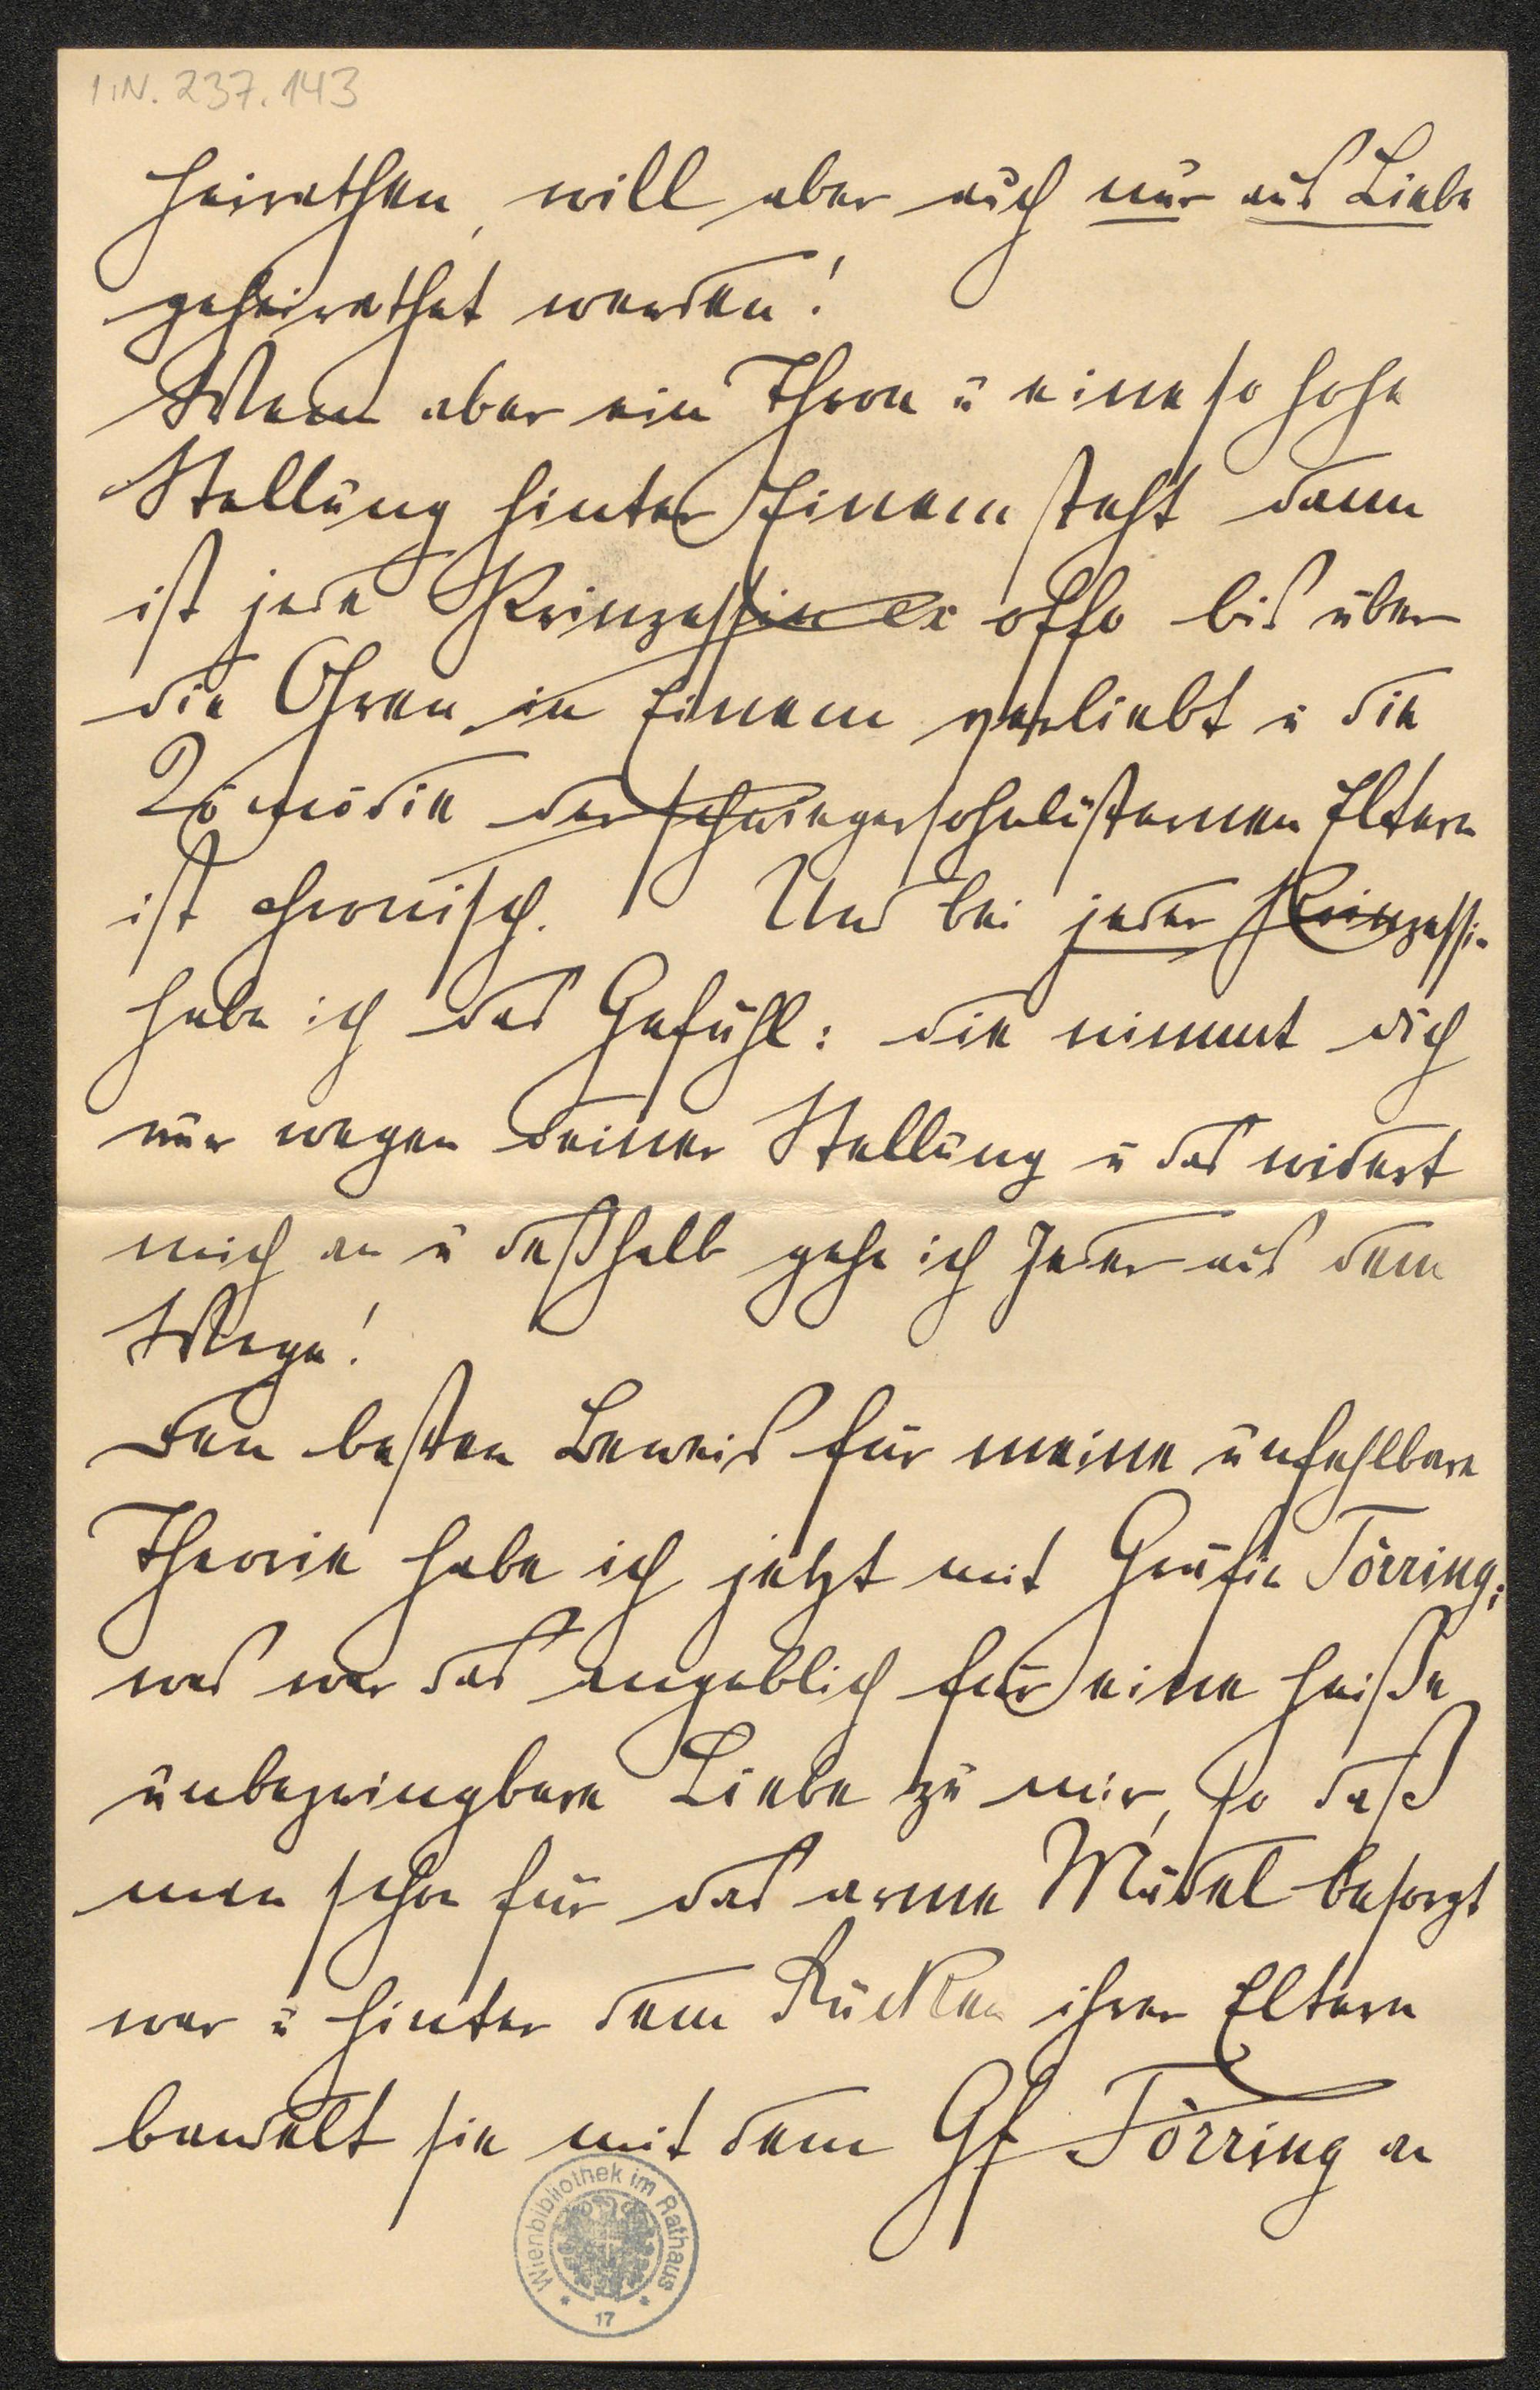 I.N. 237.143
heirathen, will aber auch nur aus Liebe
geheirathet werden!
Wenn aber ein Thron u eine so hohe
Stellung hinter Einem steht dann
ist jede Prinzessin ex offo bis über
die Ohren in Einem verliebt u die
Comödie der schwiegersohnlüsternen Eltern
ist chronisch. Und bei jeder Prinzessin
habe ich das Gefühl: die nimmt dich
nur wegen deiner Stellung u das widert
mich an u deßhalb gehe ich Jeder aus dem
Wege!
Den besten Beweis für meine unfehlbare
Theorie habe ich jetzt mit Gräfin Törring;
was war das angeblich für eine heiße
unbezwingbare Liebe zu mir, so daß
man schon für das arme Mädel besorgt
war u hinter dem Rücken ihrer Eltern
bandelt sie mit dem Gf Törring an
Wienbibliothek im Rathaus
* 17 *